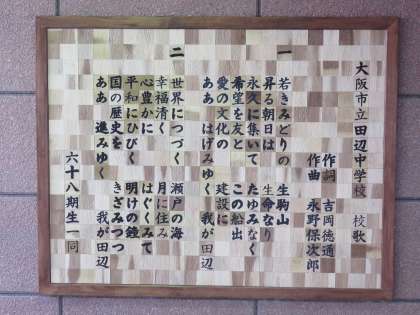 大阪市立田辺中学校 校歌
作詞 吉岡徳通
作曲 永野保次郎
一
若きみどりの 生駒山
昇る朝日は 生命なり
永久に集いて たゆみなく
希望を友と この船出
愛の文化の 建設に
ああ はげみゆく 我が田辺
二
世界につづく 瀬戸の海
幸福清く 月に住み
心豊かに はぐくみて
平和にひびく 明けの鐘
国の歴史を きざみつつ
ああ 進みゆく 我が田辺
六十八期生一同